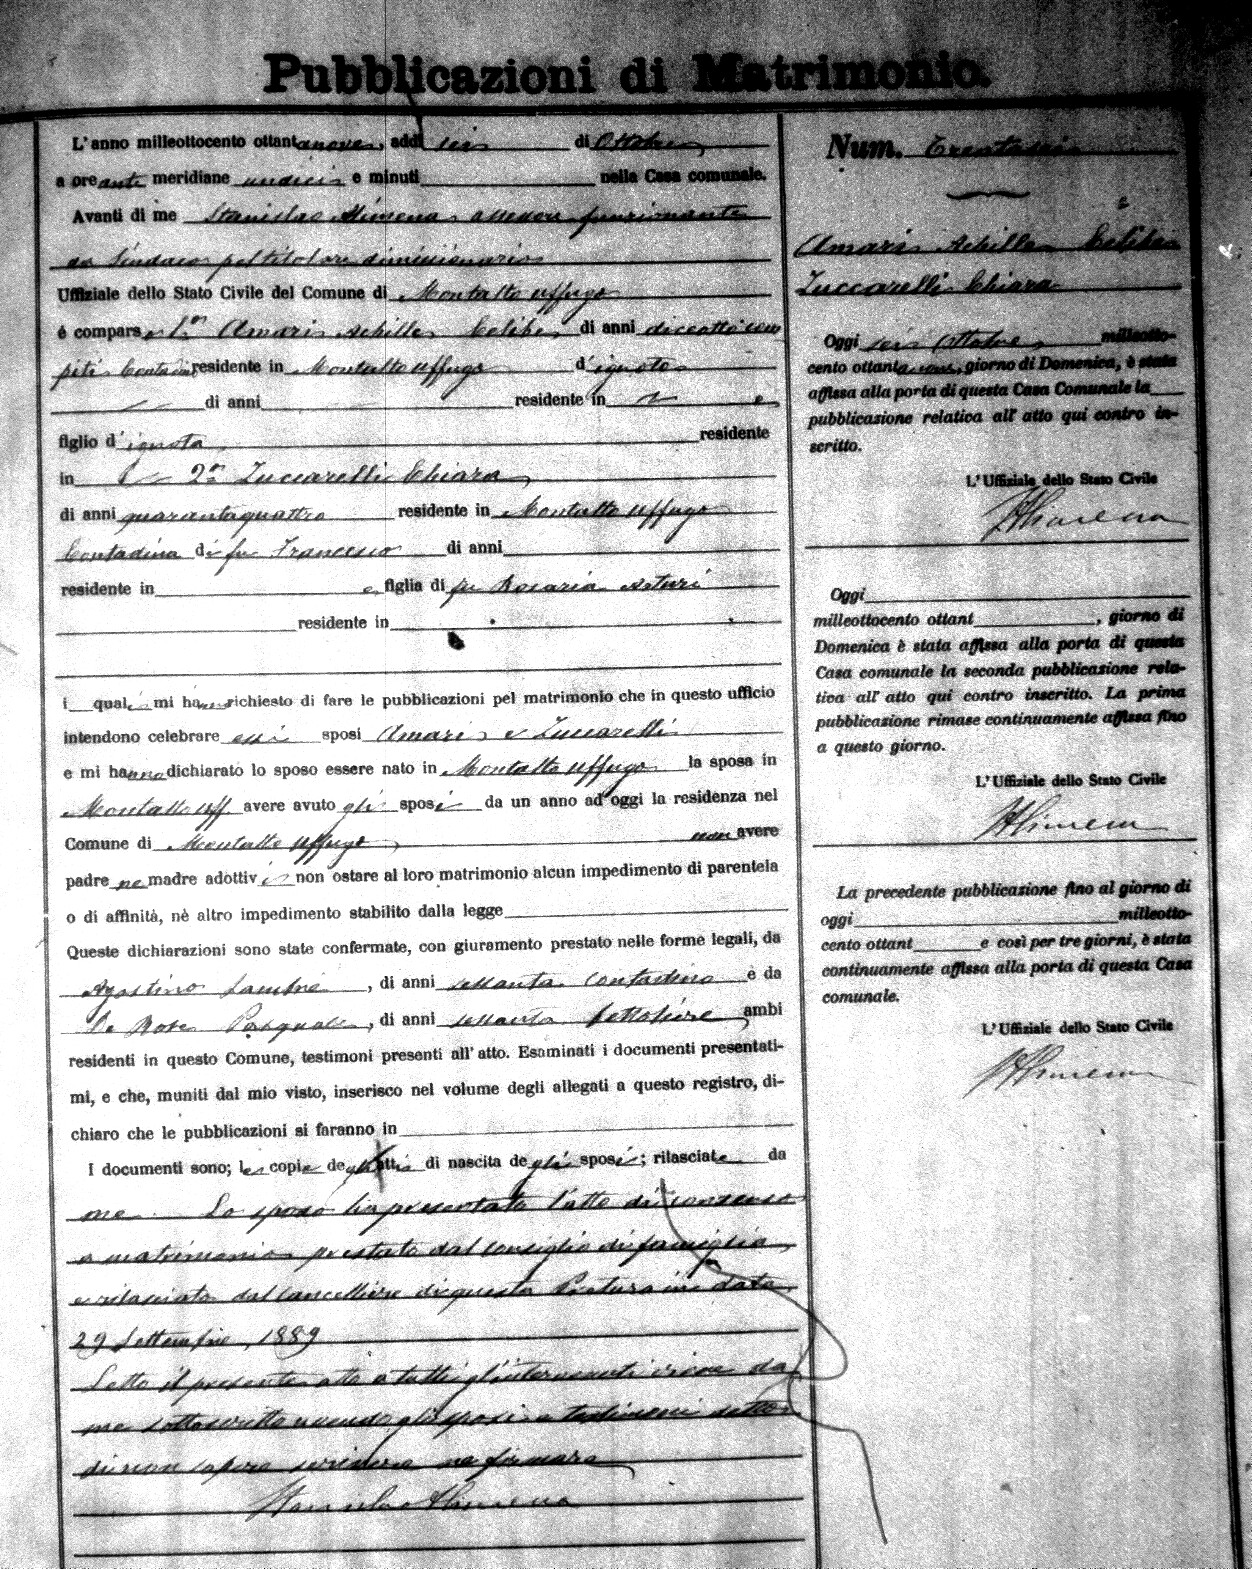 Pubblicazioni di Matrimonio.
L'anno milleottocento ottantanove, addì sei di Ottobre,
a ore anti meridiane undici e minuti nella Casa comunale.
Avanti di me Stanislao Alimena assessore funzionante
da Sindaco pel titolare dimissionario
Uffiziale dello Stato Civile del Comune di Montalto Uffugo
è comparso 1° Amari Achille Celibe, di anni diciotto com
piti Contadino residente in Montalto Uffugo d'ignoto
di anni residente in e
figlio d'ignota, residente
in 2° Zuccarelli Chiara,
di anni quarantaquattro residente in Montalto Uffugo
Contadina di fu Francesco di anni
residente in e figlia di fu Rosaria Arturi
residente in
i quali mi hanno richiesto di fare le pubblicazioni pel matrimonio che in questo ufficio
intendono celebrare essi sposi Amari e Zuccarelli
e mi hanno dichiarato lo sposo essere nato in Montalto Uffugo la sposa in
Montalto Uff. avere avuto gli sposi da un anno ad oggi la residenza nel
Comune di Montalto Uffugo, non avere
padre ne madre adottivi non ostare al loro matrimonio alcun impedimento di parentela
o di affinità, nè altro impedimento stabilito dalla legge
Queste dichiarazioni sono state confermate, con giuramento prestato nelle forme legali, da
Agostino, di anni sessanta contadino e da
De Rose Pasquale, di anni sessanta ambi
residenti in questo Comune, testimoni presenti all'atto. Esaminati i documenti presentati-
mi, e che, muniti dal mio visto, inserisco nel volume degli allegati a questo registro, di-
chiaro che le pubblicazioni si faranno in
I documenti sono; le copie degli atti di nascita degli sposi; rilasciate da
me. Lo sposo ha presentato l'atto di consenso
a matrimonio prestato dal consiglio di famiglia,
e rilasciato dal cancelliere di questa Pretura in data
29 Settembre, 1889
Letto il presente atto a tutti gl'intervenuti viene da
me sottoscritto avendo gli sposi e testimoni detto
di non sapere scrivere ne firmare
Stanislao Alimena
Num. Trentasei
Amari Achille Celibe
Zuccarelli Chiara
Oggi sei Ottobre milleotto-
cento ottantanove, giorno di Domenica, è stata
affissa alla porta di questa Casa Comunale la
pubblicazione relativa all' atto qui contro in-
scritto.
L'Uffiziale dello Stato Civile
S Alimena
Oggi
milleottocento ottant, giorno di
Domenica è stata affissa alla porta di questa
Casa comunale la seconda pubblicazione rela-
tiva all' atto qui contro inscritto. La prima
pubblicazione rimase continuamente affissa fino
a questo giorno.
L'Uffiziale dello Stato Civile
S Alimena
La precedente pubblicazione fino al giorno di
oggi milleotto-
cento ottant e così per tre giorni, è stata
continuamente affissa alla porta di questa Casa
comunale.
L'Uffiziale dello Stato Civile
S Alimena